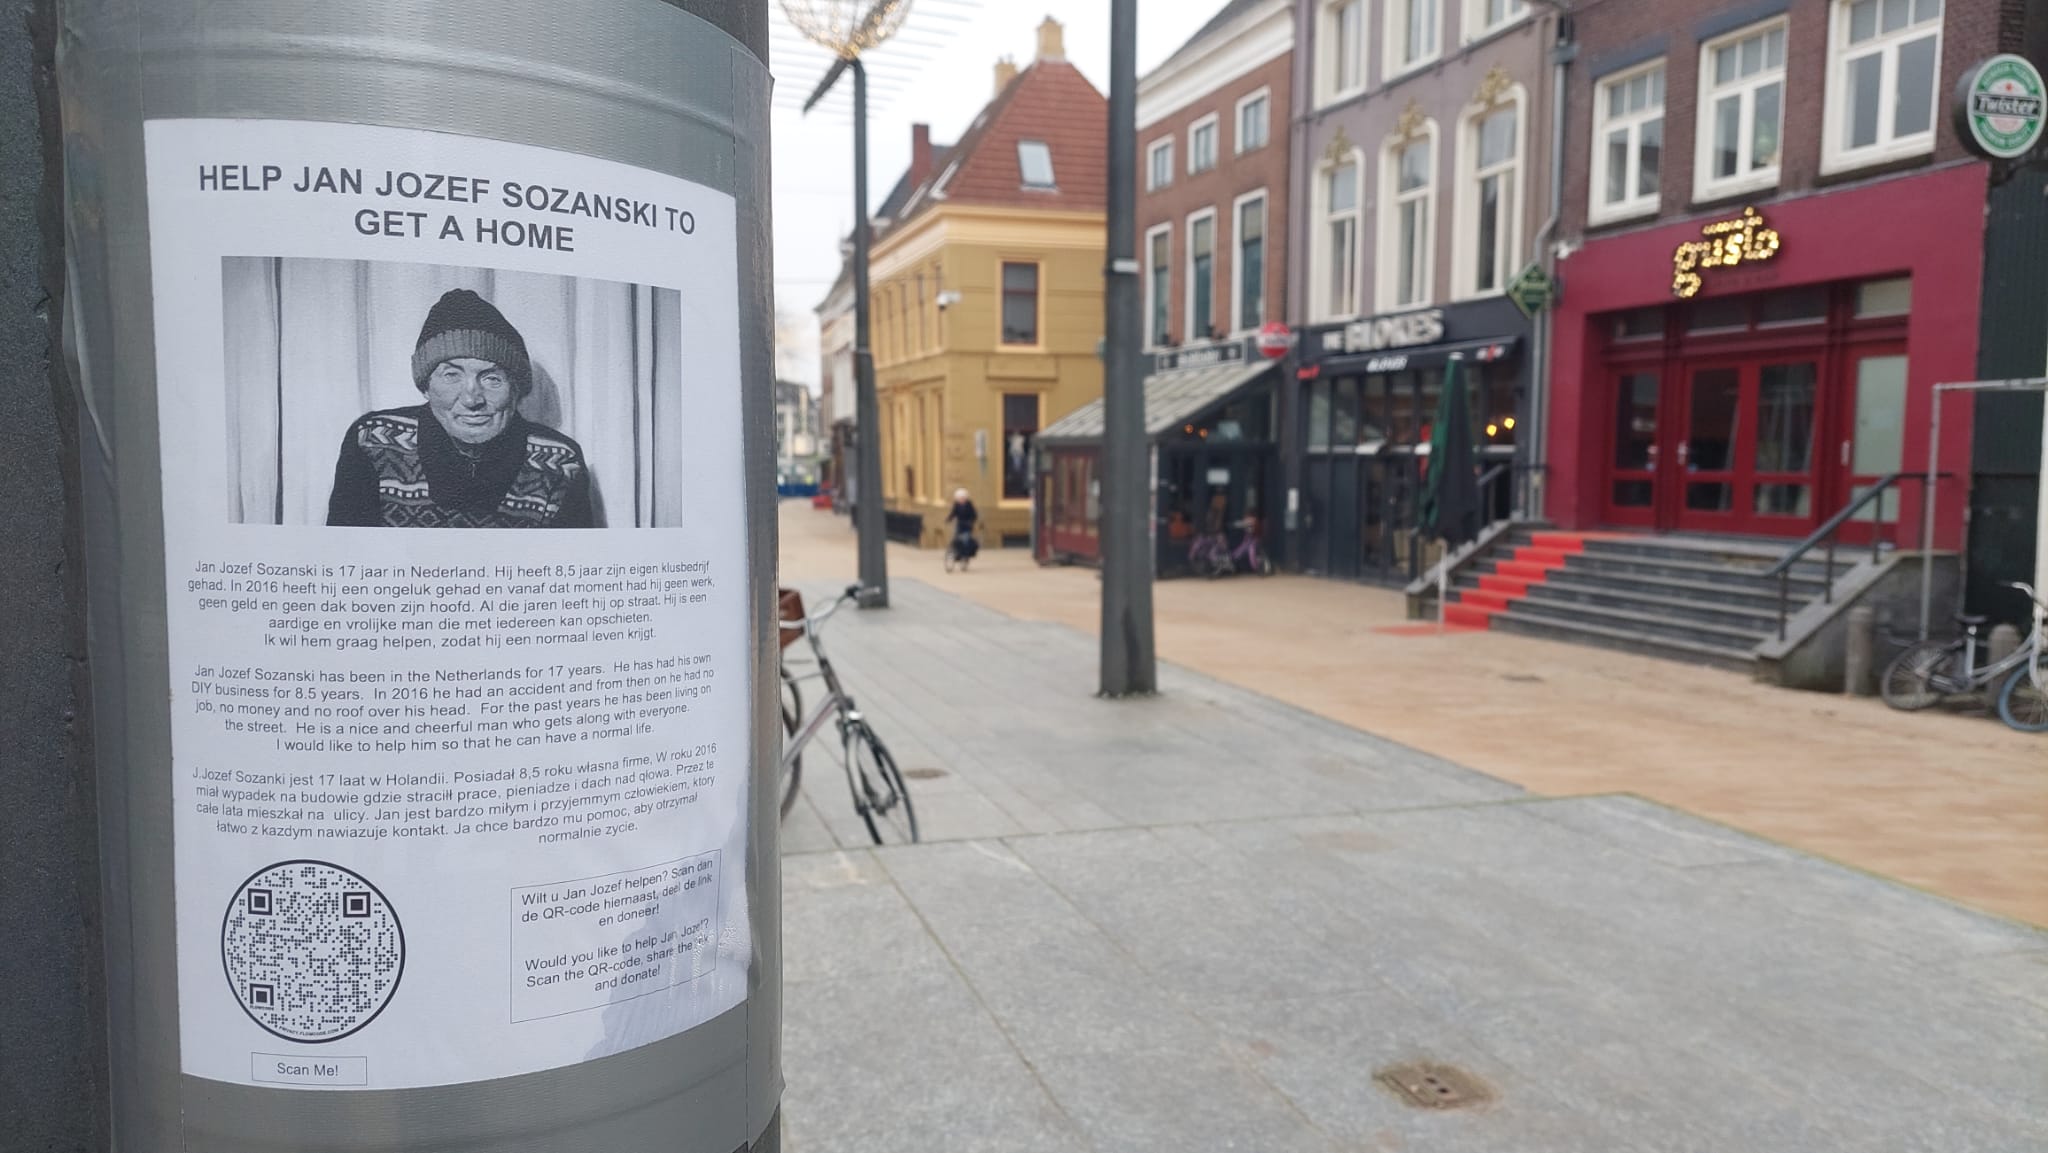 HELP JAN JOZEF SOZANSKI TO
GET A HOME
Jan Jozef Sozanski is 17 jaar in Nederland. Hij heeft 8,5 jaar zijn eigen klusbedrijf
gehad. In 2016 heeft hij een ongeluk gehad en vanaf dat moment had hij geen werk,
geen geld en geen dak boven zijn hoofd. Al die jaren leeft hij op straat. Hij is een
aardige en vrolijke man die met iedereen kan opschieten.
Ik wil hem graag helpen, zodat hij een normaal leven krijgt.
Jan Jozef Sozanski has been in the Netherlands for 17 years. He has had his own
DIY business for 8.5 years. In 2016 he had an accident and from then on he had no
job, no money and no roof over his head. For the past years he has been living on
the street. He is a nice and cheerful man who gets along with everyone.
I would like to help him so that he can have a normal life.
J.Jozef Sozanki jest 17 laat w Holandii. Posiadał 8,5 roku własna firme, W roku 2016
miał wypadek na budowie gdzie straciłł prace, pieniadze i dach nad głowa. Przez te
całe lata mieszkał na ulicy. Jan jest bardzo miłym i przyjemmym człowiekiem, ktory
łatwo z kazdym nawiazuje kontakt. Ja chce bardzo mu pomoc, aby otrzymał
normalnie zycie.
FLOWCODE
PRIVACY.FLOWCODE.COM
Scan Me!
Wilt u Jan Jozef helpen? Scan dan
de QR-code hiernaast, deel de link
en doneer!
Would you like to help Jan Jozef?
Scan the QR-code, share the link
and donate!
DE BLOKES
gusto
Twister